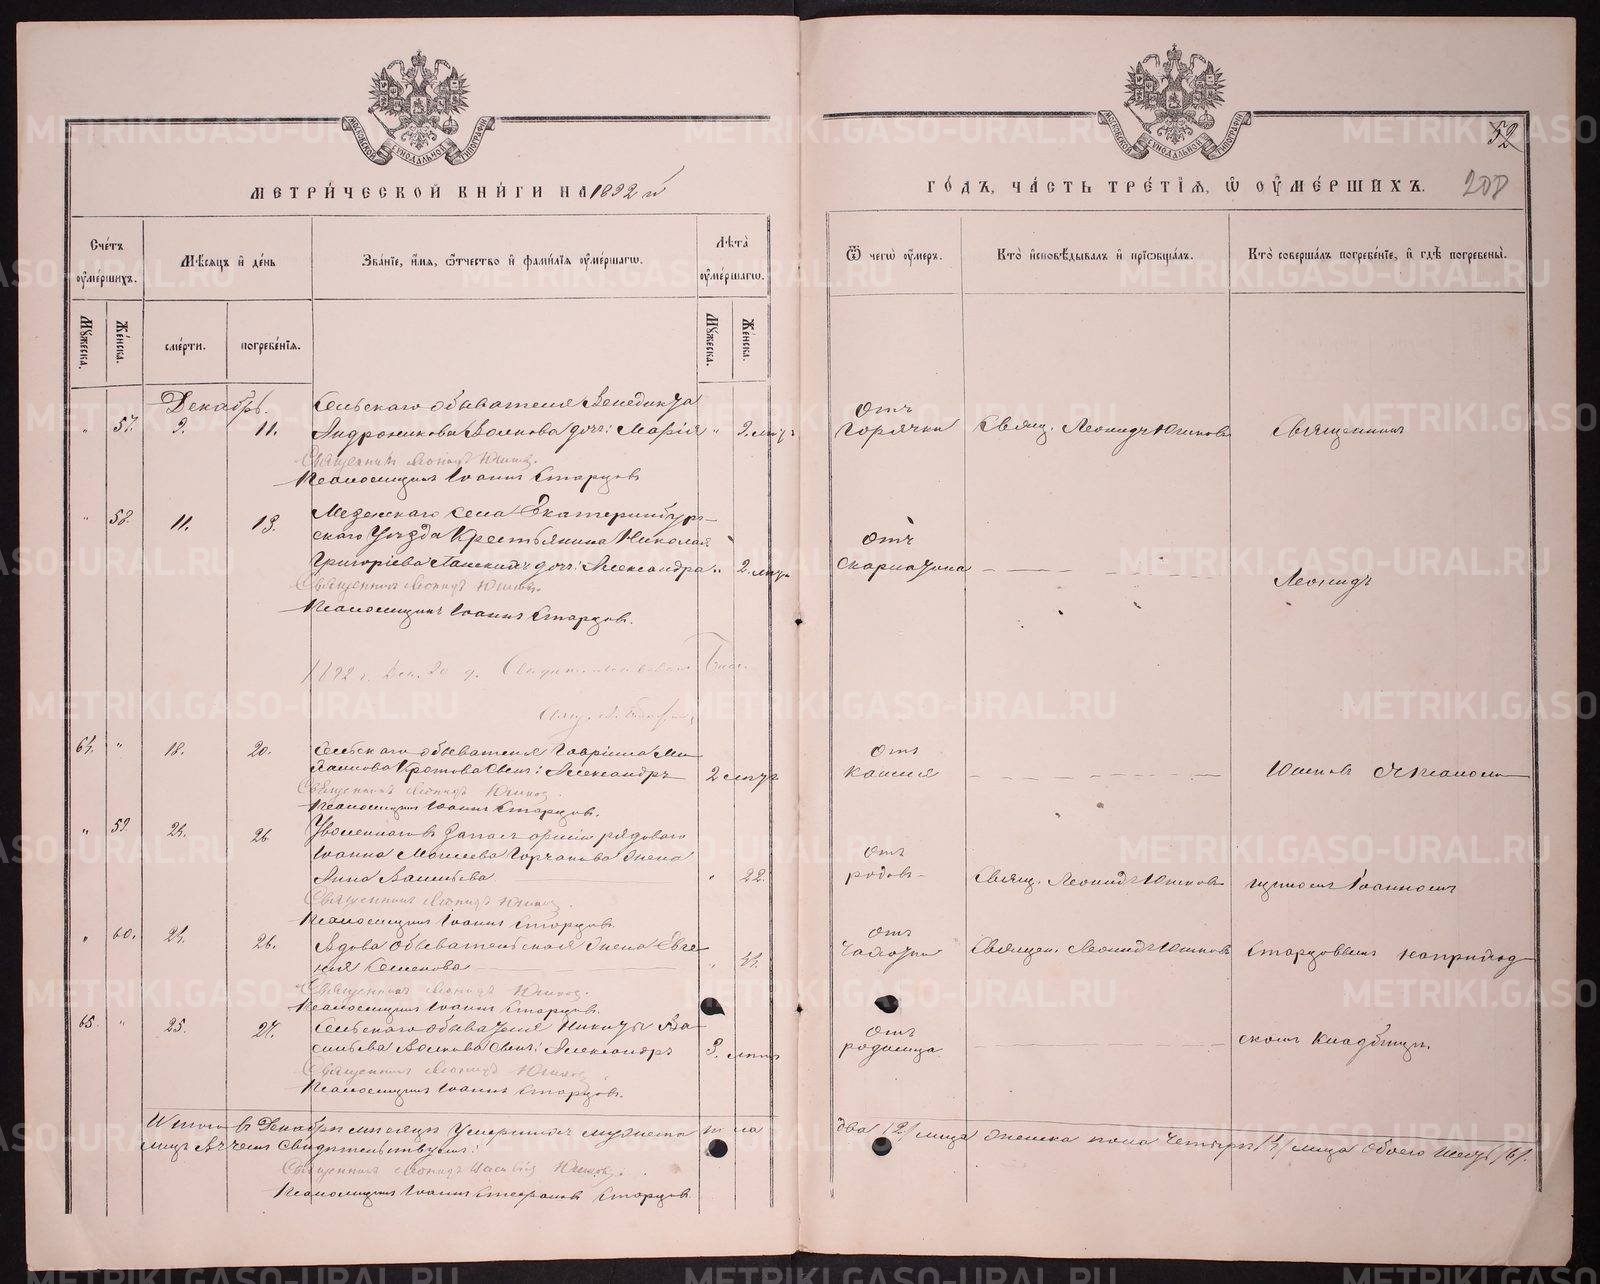 МОСКОВСКОЙ СѴНОДАЛЬНОЙ ТИПОГРАФІИ
МЕТРИ́ЧЕСКОЙ КНИ́ГИ НА 1892 й
Счётъ ᲂу҆ме́ршихъ.
Мѣ́сяцъ и҆ де́нь
Зва́нїе, и҆́мя, ѻ҆́тчество и҆ фами́лїя ᲂу҆ме́ршагѡ.
Лѣ́та ᲂу҆ме́ршагѡ.
Мꙋ́жеска.
Же́нска.
сме́рти.
погребе́нїя.
Мꙋ́жеска.
Же́нска.
Декабрь.
Сельскаго обывателя Венедикта
" 57. 9. 11. Андроникова Волкова дочь: Марія " 2. лѣтъ
Священникъ Леонидъ Юшковъ.
Псаломщикъ Іоаннъ Старцовъ
" 58. 11. 13. села Екатеринбург-
скаго Уѣзда Крестьянина Николая
Григоріева дочь: Александра " 2. лѣтъ
Священникъ Леонидъ Юшковъ.
Псаломщикъ Іоаннъ Старцовъ.
1892 г. Дек. 20 д.
64. " 18. 20. Сельскаго обывателя Гавріила Ми-
хаилова Кротова сынъ: Александръ 2 лѣтъ
Священникъ Леонидъ Юшковъ.
Псаломщикъ Іоаннъ Старцовъ.
" 59. 24. 26 Уволеннаго въ Запасъ арміи рядоваго
Іоанна Моисеева Горчакова жена
Анна Васильева " 22.
Священникъ Леонидъ Юшковъ.
Псаломщикъ Іоаннъ Старцовъ.
" 60. 24. 26. Вдова Обывательская жена Евге-
нія Семенова
Священникъ Леонидъ Юшковъ.
Псаломщикъ Іоаннъ Старцовъ.
65. " 25. 27. Сельскаго обывателя Никиты Ва-
сильева Волкова сынъ: Александръ 3. лѣтъ
Священникъ Леонидъ Юшковъ
Псаломщикъ Іоаннъ Старцовъ.
Итого въ Декабрѣ мѣсяцѣ Умершихъ мужеска пола
лицъ. Въ чемъ Свидѣтельствуемъ:
Священникъ Леонидъ Юшковъ.
Псаломщикъ Іоаннъ Стефановъ Старцовъ
МОСКОВСКОЙ СѴНОДАЛЬНОЙ ТИПОГРАФІИ
52
ГО́ДЪ, ЧА́СТЬ ТРЕ́ТІѦ, Ѡ҆ ОУ҆МЕ́РШИХЪ.
Ѿ чегѡ̀ ᲂу҆́меръ.
Кто̀ и҆сповѣ́дывалъ и҆ прїѡбща́лъ.
Кто̀ соверша́лъ погребе́нїе, и҆ гдѣ̀ погребены̀.
Отъ
горячки Свящ. Леонидъ Юшковъ Священникъ
Отъ
скарлатина
Леонидъ
Отъ
кашля Юшковъ съ псалом-
Отъ
родовъ Свящ. Леонидъ Юшковъ щикомъ Іоанномъ
Отъ
чахотки Священ. Леонидъ Юшковъ Старцовымъ на приход-
Отъ
родимца скомъ кладбищѣ.
два /2/ лица женска пола четыре /4/ лица обоего шесть /6/.
METRIKI.GASO-URAL.RU